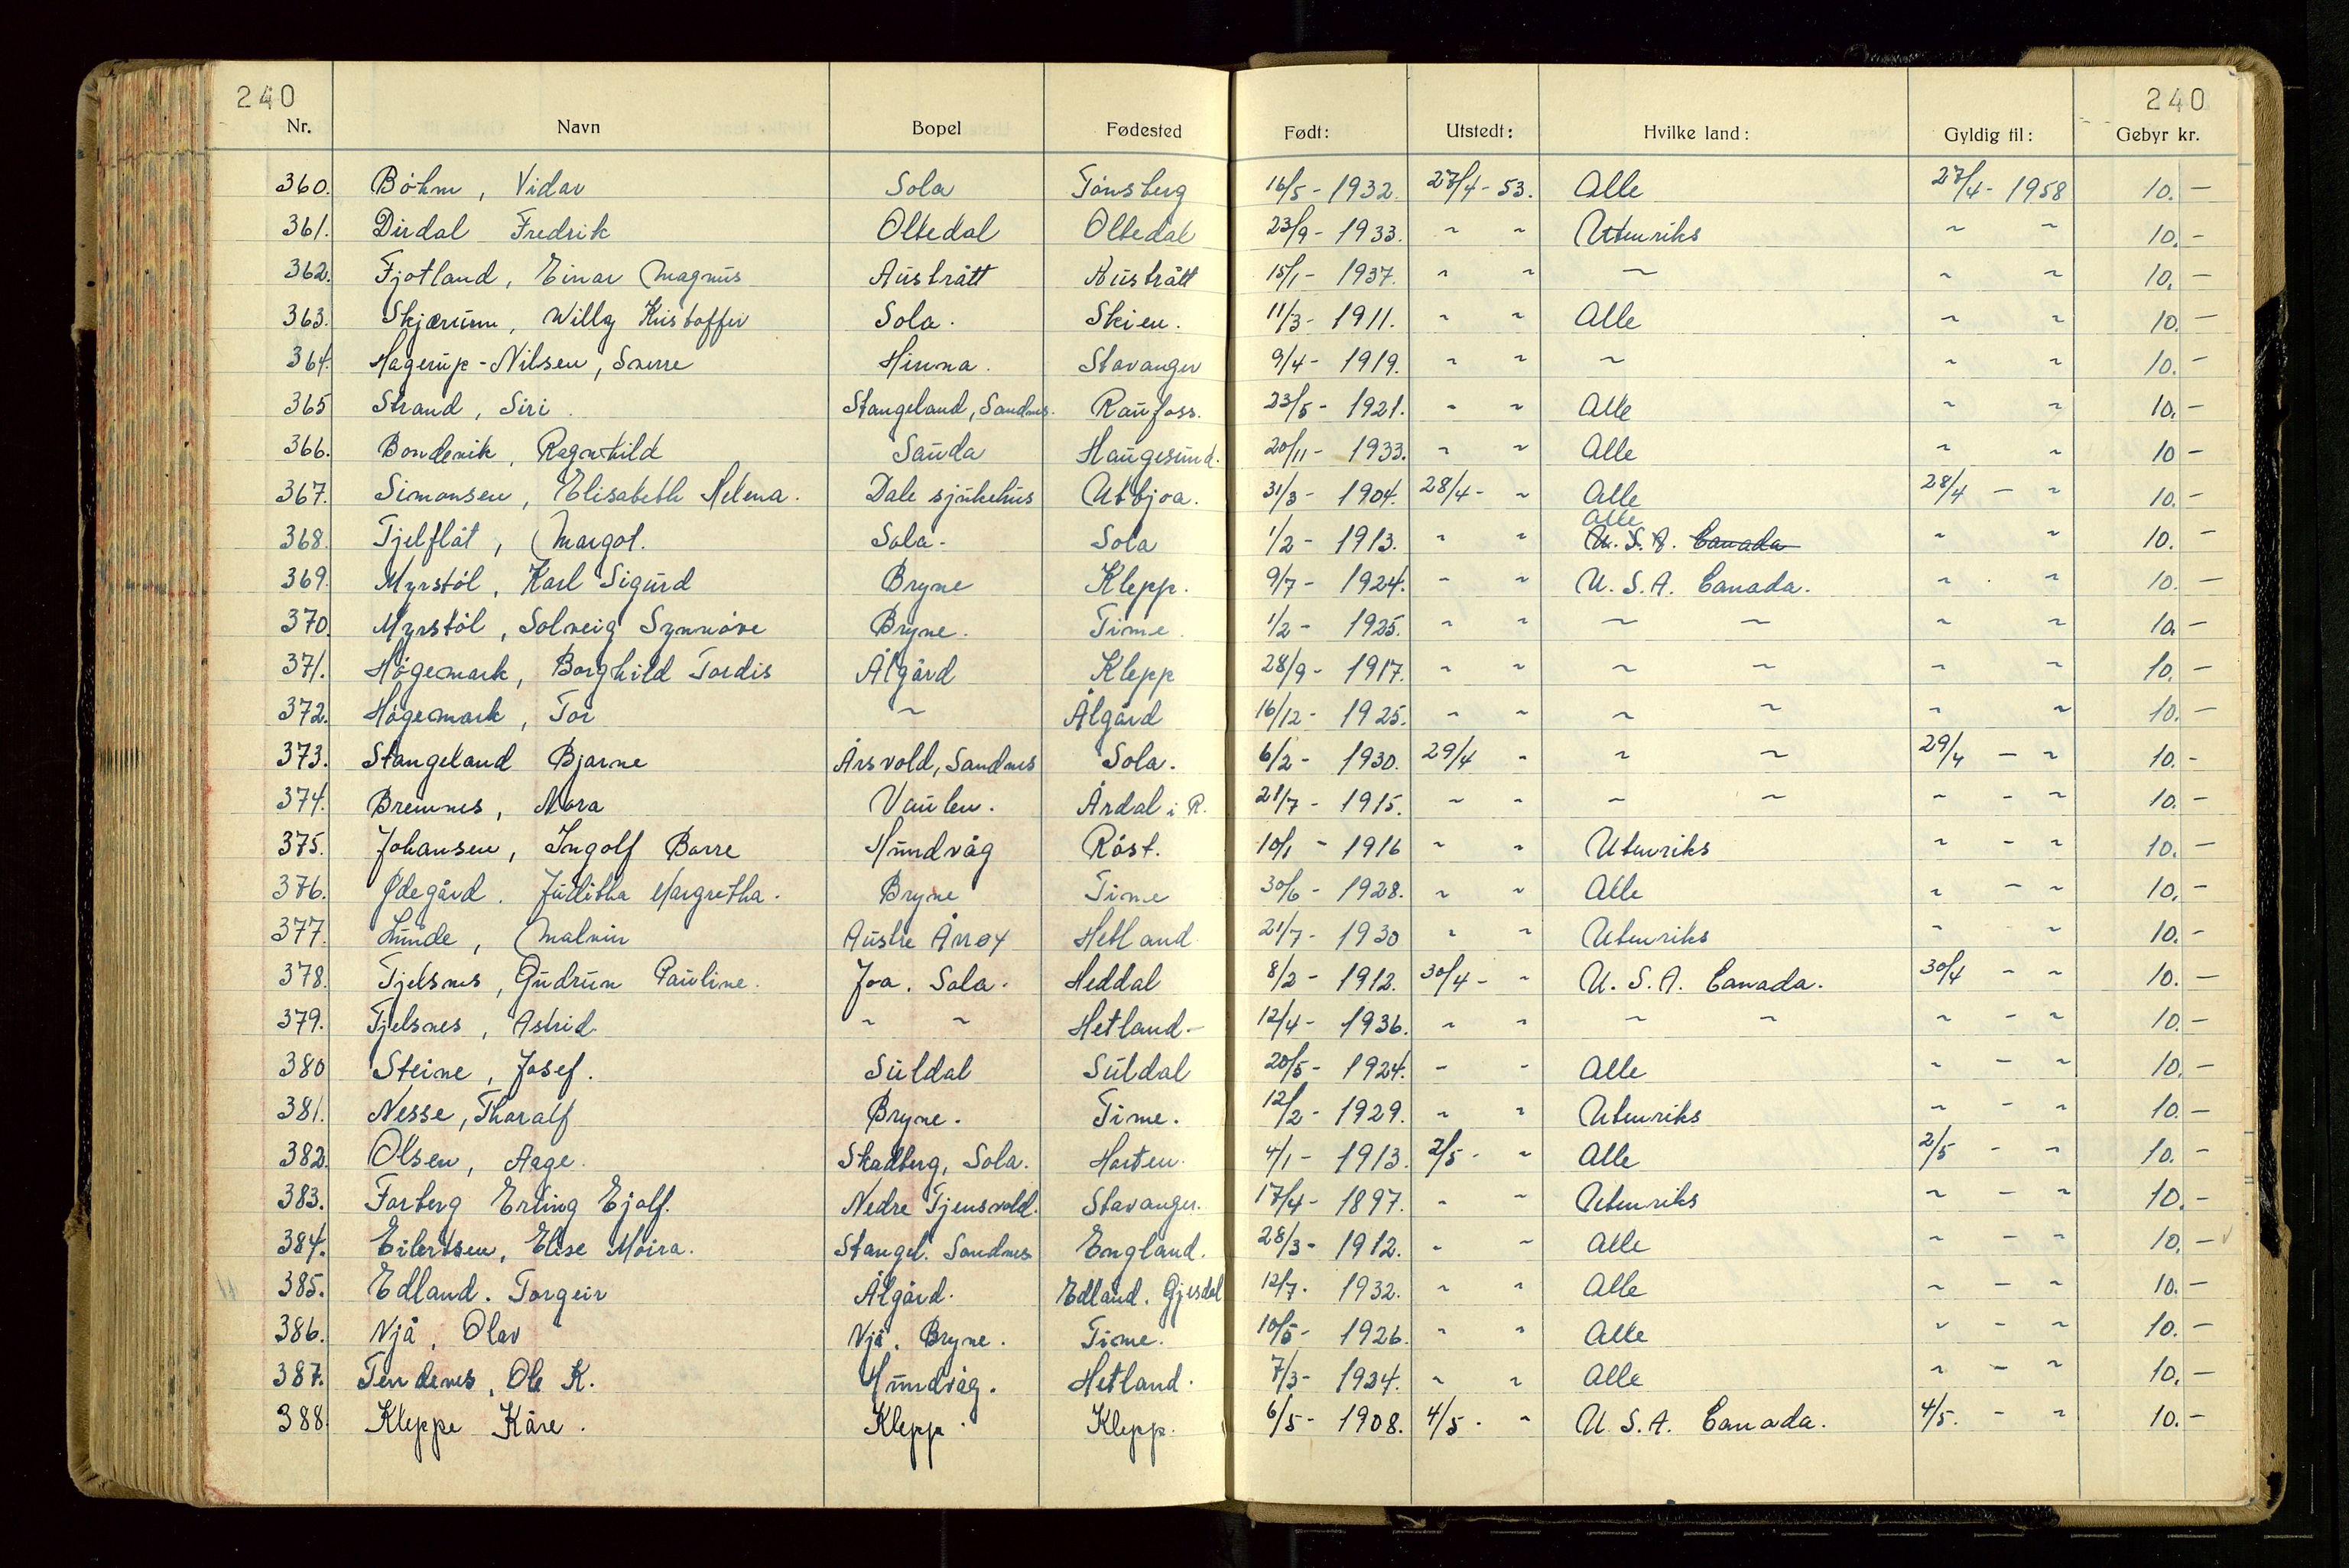 240 240
Nr. Navn Bopel Fødested Født: Utstedt: Hvilke land: Gyldig til: Gebyr kr.
360. Böhm, Vidar Sola Tønsberg 16/5 - 1932. 27/4 - 53. Alle 27/4 - 1958 10. —
361. Dirdal Fredrik Oltedal Oltedal 23/9 - 1933. ~ ~ Utenriks ~ ~ 10. -
362. Fjotland, Einar Magnus Austrått Austrått 15/1 - 1937. ~ ~ ~ ~ ~ 10. —
363. Skjærum, Willy Kristoffer Sola. Skien. 11/3 - 1911. ~ ~ Alle ~ ~ 10. —
364. Hagerup-Nilsen, Sverre Hinna. Stavanger 9/4 - 1919. ~ ~ ~ ~ ~ 10. —
365 Strand, Siri. Stangeland, Sandnes. Raufoss. 23/5 - 1921. ~ ~ Alle ~ ~ 10. —
366. Bondevik, Ragnhild Sauda Haugesund. 20/11 - 1933. ~ ~ Alle ~ ~ 10 -
367. Simonsen, Elisabeth Helena. Dale sjukehus Utbjoa. 31/3 - 1904. 28/4 - ~ Alle 28/4 - ~ 10. —
Alle
368. Tjelflåt, Margot. Sola. Sola 1/2 - 1913. ~ ~ U. S. A. Canada ~ ~ 10. —
369. Myrstöl, Karl Sigurd Bryne Klepp. 9/7 - 1924. ~ ~ U. S. A. Canada. ~ ~ 10. —
370. Myrstöl, Solveig Synnöve Bryne. Time. 1/2 - 1925. ~ ~ ~ ~ ~ ~ 10. —
371. Högemark, Borghild Tordis Ålgård Klepp 28/9 - 1917. ~ ~ ~ ~ ~ ~ 10. —
372. Högemark, Tor ~ Ålgård 16/12 - 1925. ~ ~ ~ ~ ~ ~ 10. —
373. Stangeland Bjarne Årsvold, Sandnes Sola. 6/2 - 1930. 29/4 ~ ~ ~ 29/4 - ~ 10. -
374. Bremnes, Nora Vaulen. Årdal i R. 21/7 - 1915. ~ ~ ~ ~ ~ - ~ 10. —
375. Johansen, Ingolf Barre Hundvåg Röst. 10/1 - 1916 ~ ~ Utenriks ~ - ~ 10. —
376. Ødegård. Juditha Margretha. Bryne Time 30/6 - 1928. ~ ~ Alle ~ - ~ 10. —
377. Lunde, Malvin Austre Åmøy Hetland 21/7 - 1930 ~ ~ Utenriks ~ ~ 10. —
378. Tjelsnes, Gudrun Pauline. Joa. Sola. Heddal 8/2 - 1912. 30/4 - ~ U. S. A. Canada. 30/4 - ~ 10. —
379. Tjelsnes, Astrid ~ ~ Hetland - 12/4 - 1936. ~ ~ ~ ~ ~ - ~ 10. —
380 Steine, Josef. Suldal Suldal 20/5 - 1924. ~ ~ Alle ~ - ~ 10. —
381. Nesse, Thoralf Bryne. Time. 12/2 - 1929. ~ ~ Utenriks ~ - ~ 10. —
382. Olsen, Aage. Skadberg, Sola. Horten. 4/1 - 1913. 2/5 - ~ Alle 2/5 - ~ 10. —
383. Farberg Erling Ejolf. Nedre Tjensvold. Stavanger. 17/4 - 1897. ~ ~ Utenriks ~ - ~ 10. -
384. Eilertsen, Elise Moira. Stangel. Sandnes England. 28/3 - 1912. ~ ~ Alle ~ - ~ 10. —
385. Edland. Torgeir Ålgård. Edland. Gjesdal 12/7. 1932. ~ ~ Alle ~ - ~ 10. —
386. Njå, Olav Njå. Bryne. Time. 10/5 - 1926. ~ ~ Alle ~ - ~ 10. —
387. Tendenes, Ole K. Hundvåg. Hetland. 7/3 - 1924. ~ ~ Alle ~ - ~ 10. —
388 Kleppe Kåre. Klepp. Klepp. 6/5 - 1908. 4/5 - ~ U. S. A. Canada. 4/5. - ~ 10. -